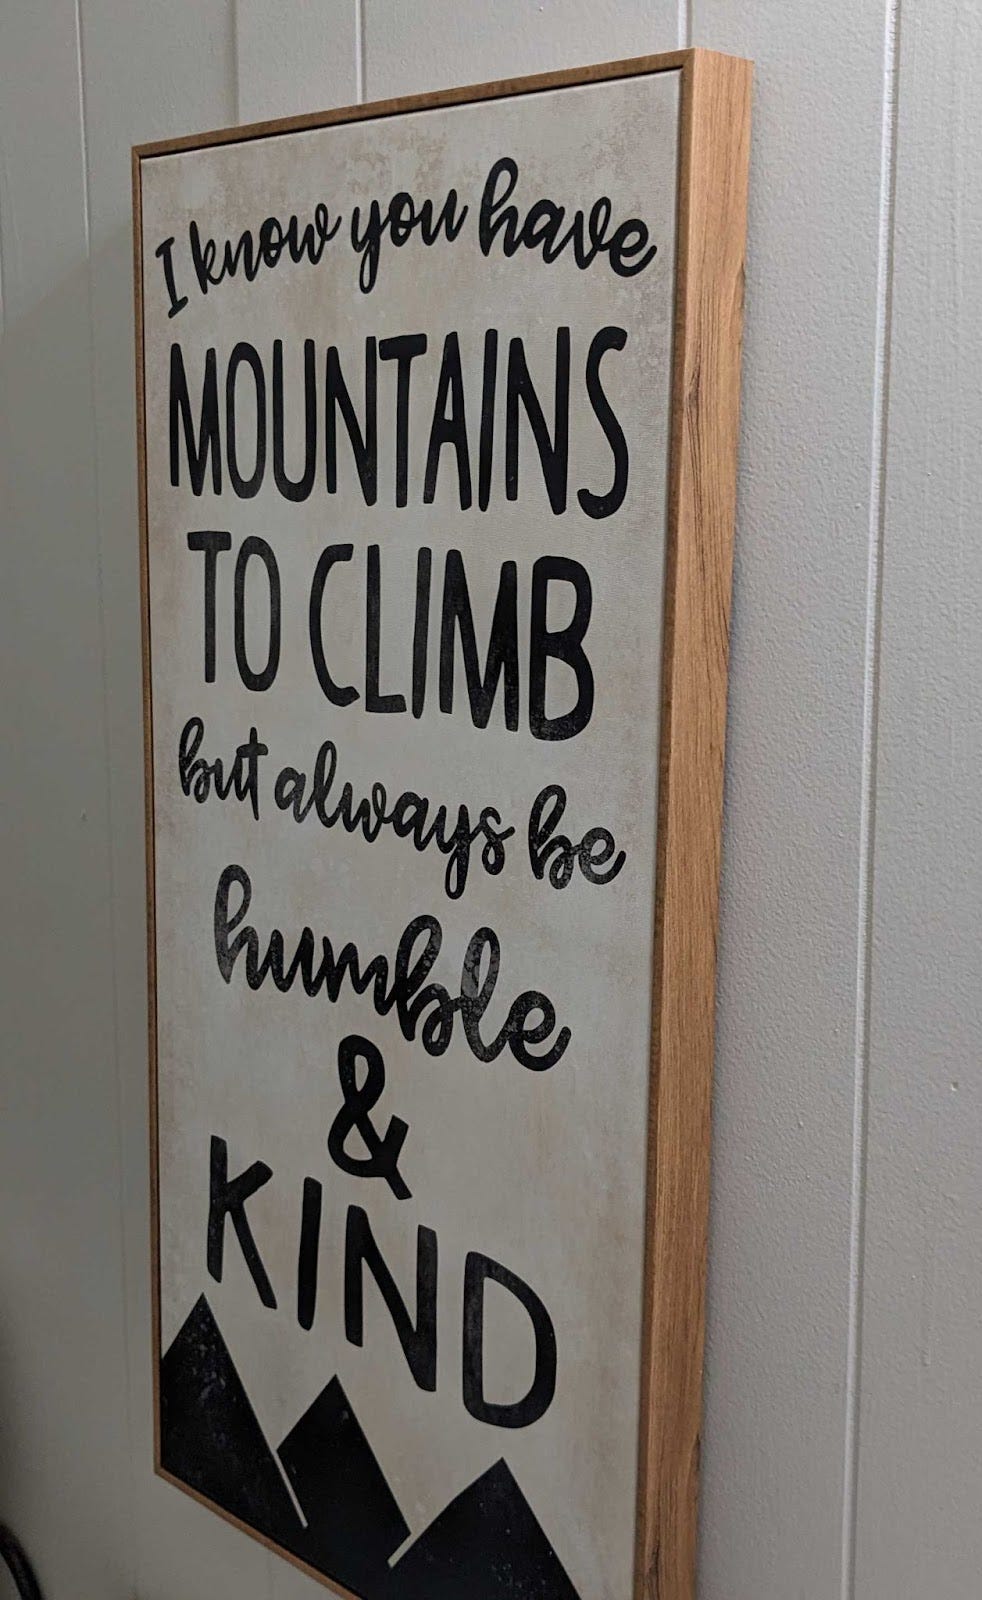 I know you have
MOUNTAINS
TO CLIMB
but always be
humble
&
KIND